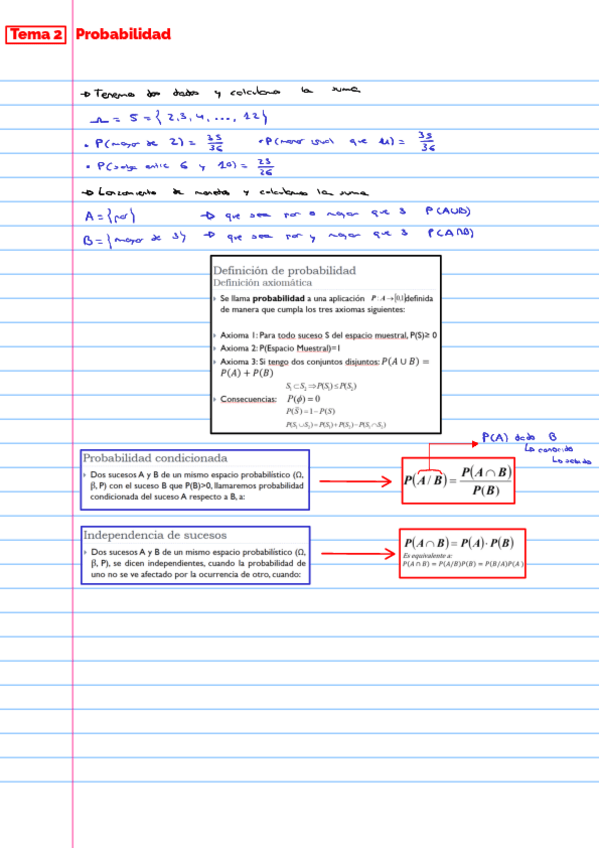 Tema 2 Probabilidad
→ Tenemos dos dados y calculamos la suma
Ω = S = {2,3,4, ..., 12}
• P(mayor de 2) = 35/36 • P(menor igual que 11) = 35/36
• P(salga entre 6 y 10) = 23/26
→ Lanzamiento de monedas y calculamos la suma
A = {par} → que sea par o mayor que 3 P(A∪B)
B = {mayor de 3} → que sea par y mayor que 3 P(A∩B)
Definición de probabilidad
Definición axiomática
Se llama probabilidad a una aplicación P : A → [0,1] definida
de manera que cumpla los tres axiomas siguientes:
Axioma 1: Para todo suceso S del espacio muestral, P(S)≥ 0
Axioma 2: P(Espacio Muestral)=1
Axioma 3: Si tengo dos conjuntos disjuntos: P(A ∪ B) =
P(A) + P(B)
S₁ ⊂ S₂ ⇒ P(S₁) ≤ P(S₂)
Consecuencias: P(ϕ) = 0
P(S̄) = 1 − P(S)
P(S₁ ∪ S₂) = P(S₁) + P(S₂) − P(S₁ ∩ S₂)
P(A) dado B
Lo conocido
Lo sabido
Probabilidad condicionada
Dos sucesos A y B de un mismo espacio probabilístico (Ω,
β, P) con el suceso B que P(B)>0, llamaremos probabilidad
condicionada del suceso A respecto a B, a:
P(A / B) = P(A ∩ B) / P(B)
Independencia de sucesos
Dos sucesos A y B de un mismo espacio probabilístico (Ω,
β, P), se dicen independientes, cuando la probabilidad de
uno no se ve afectado por la ocurrencia de otro, cuando:
P(A ∩ B) = P(A)· P(B)
Es equivalente a:
P(A ∩ B) = P(A/B)P(B) = P(B/A)P(A)